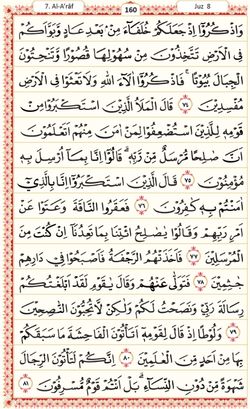 7. Al-A'râf 160 Juz 8
وَاذْكُرُوْٓا اِذْ جَعَلَكُمْ خُلَفَاۤءَ مِنْۢ بَعْدِ عَادٍ وَّبَوَّاَكُمْ
فِى الْاَرْضِ تَتَّخِذُوْنَ مِنْ سُهُوْلِهَا قُصُوْرًا وَّتَنْحِتُوْنَ
الْجِبَالَ بُيُوْتًا ۚ فَاذْكُرُوْٓا اٰلَاۤءَ اللّٰهِ وَلَا تَعْثَوْا فِى الْاَرْضِ
مُفْسِدِيْنَ ﴿٧٤﴾ قَالَ الْمَلَاُ الَّذِيْنَ اسْتَكْبَرُوْا مِنْ
قَوْمِهٖ لِلَّذِيْنَ اسْتُضْعِفُوْا لِمَنْ اٰمَنَ مِنْهُمْ اَتَعْلَمُوْنَ
اَنَّ صٰلِحًا مُّرْسَلٌ مِّنْ رَّبِّهٖ ۗ قَالُوْٓا اِنَّا بِمَآ اُرْسِلَ بِهٖ
مُؤْمِنُوْنَ ﴿٧٥﴾ قَالَ الَّذِيْنَ اسْتَكْبَرُوْٓا اِنَّا بِالَّذِيْٓ
اٰمَنْتُمْ بِهٖ كٰفِرُوْنَ ﴿٧٦﴾ فَعَقَرُوا النَّاقَةَ وَعَتَوْا عَنْ
اَمْرِ رَبِّهِمْ وَقَالُوْا يٰصٰلِحُ ائْتِنَا بِمَا تَعِدُنَآ اِنْ كُنْتَ مِنَ
الْمُرْسَلِيْنَ ﴿٧٧﴾ فَاَخَذَتْهُمُ الرَّجْفَةُ فَاَصْبَحُوْا فِيْ دَارِهِمْ
جٰثِمِيْنَ ﴿٧٨﴾ فَتَوَلّٰى عَنْهُمْ وَقَالَ يٰقَوْمِ لَقَدْ اَبْلَغْتُكُمْ
رِسَالَةَ رَبِّيْ وَنَصَحْتُ لَكُمْ وَلٰكِنْ لَّا تُحِبُّوْنَ النّٰصِحِيْنَ
﴿٧٩﴾ وَلُوْطًا اِذْ قَالَ لِقَوْمِهٖٓ اَتَأْتُوْنَ الْفَاحِشَةَ مَا سَبَقَكُمْ
بِهَا مِنْ اَحَدٍ مِّنَ الْعٰلَمِيْنَ ﴿٨٠﴾ اِنَّكُمْ لَتَأْتُوْنَ الرِّجَالَ
شَهْوَةً مِّنْ دُوْنِ النِّسَاۤءِ ۗ بَلْ اَنْتُمْ قَوْمٌ مُّسْرِفُوْنَ ﴿٨١﴾